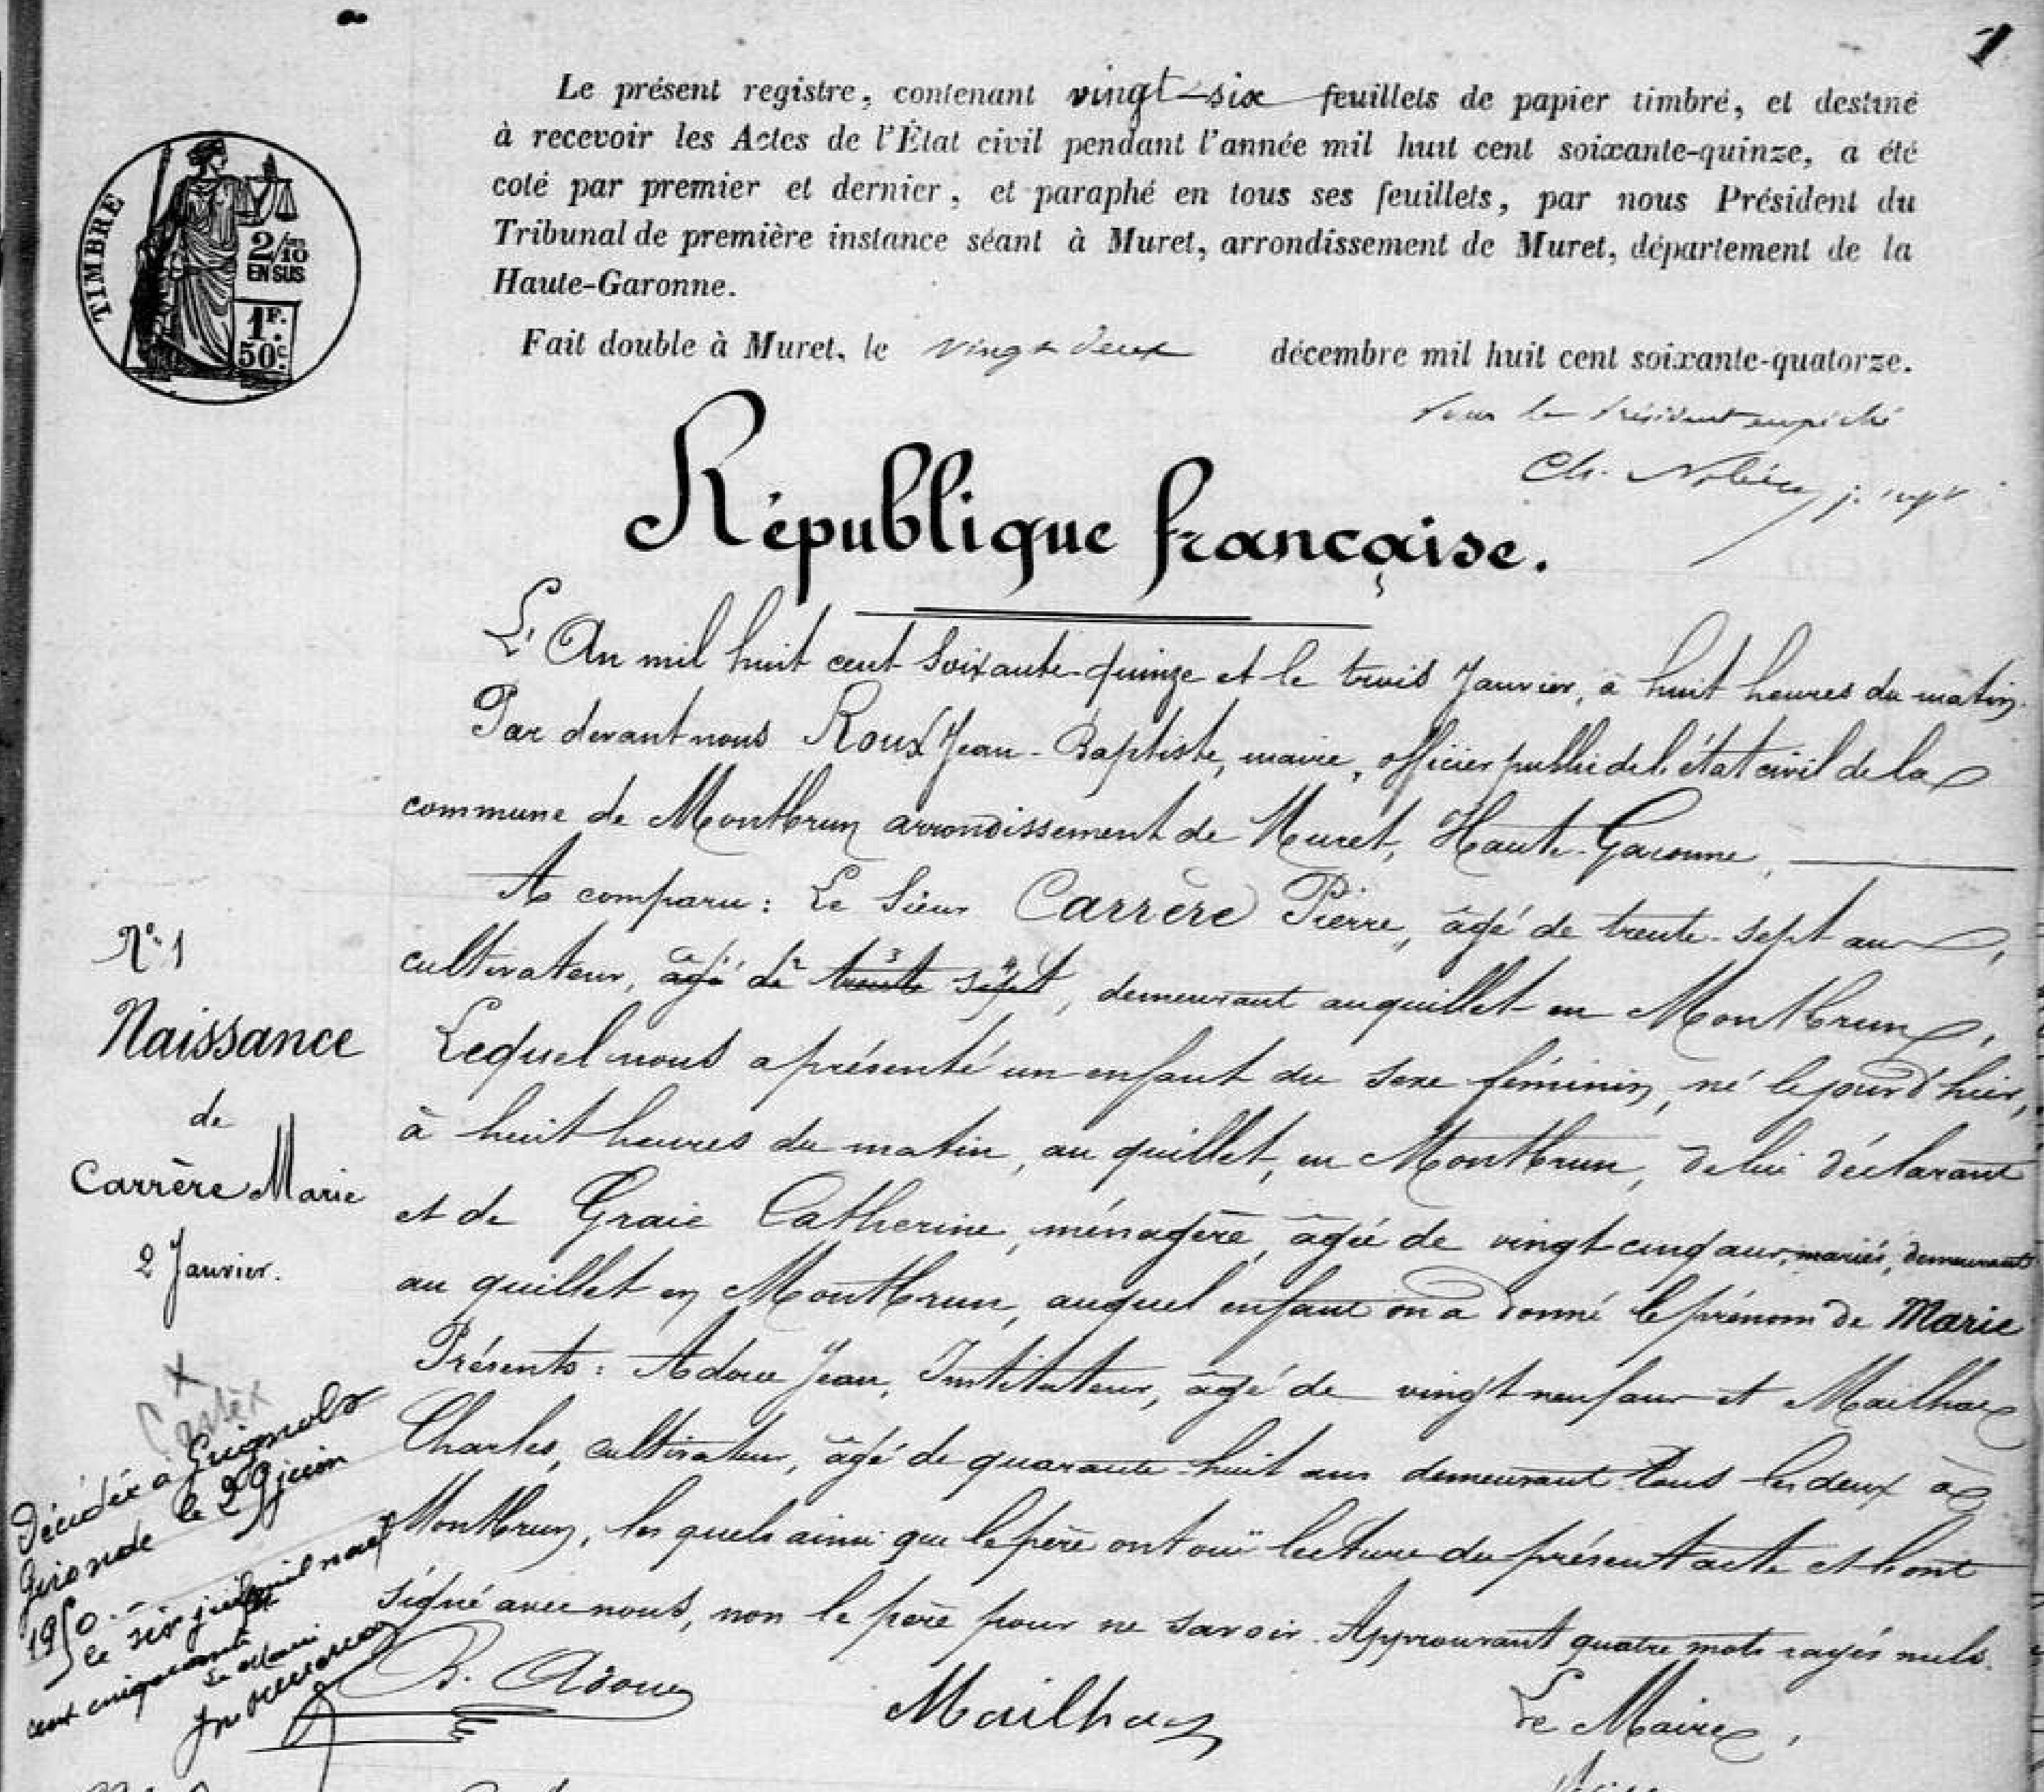 1
Le présent registre, contenant vingt-six feuillets de papier timbré, et destiné
à recevoir les Actes de l'État civil pendant l'année mil huit cent soixante-quinze, a été
coté par premier et dernier, et paraphé en tous ses feuillets, par nous Président du
Tribunal de première instance séant à Muret, arrondissement de Muret, département de la
Haute-Garonne.
Fait double à Muret, le vingt deux décembre mil huit cent soixante-quatorze.
TIMBRE
2/10
EN SUS
1F.
50c.
Pour le Président empêché
Ch.
République française.
L'An mil huit cent soixante-quinze et le trois Janvier, à huit heures du matin.
Par devant nous Roux Jean-Baptiste, maire, officier public de l'état civil de la
commune de Montbrun arrondissement de Muret, Haute-Garonne,
A comparu : Le Sieur Carrère Pierre, âgé de trente-sept ans,
cultivateur, âgé de trente sept, demeurant au quillet en Montbrun,
Lequel nous a présenté un enfant du sexe féminin, né le jour d'hier,
à huit heures du matin, au quillet, en Montbrun, de lui déclarant
et de Graie Catherine, ménagère, âgée de vingt cinq ans, mariés, demeurant
au quillet en Montbrun, auquel enfant on a donné le prénom de Marie
Présents : Adoue Jean, Instituteur, âgé de vingt neuf ans et Mailhac
Charles, cultivateur, âgé de quarante-huit ans demeurant tous les deux à
Montbrun, les quels ainsi que le père ont ouï lecture du présent acte et l'ont
signé avec nous, non le père pour ne savoir. Approuvant quatre mots rayés nuls.
B. Adoue
Mailhac
Le Maire,
N° 1
Naissance
de
Carrère Marie
2 Janvier.
Castex
Décédée à Grignols
Gironde le 29 juin
1950.
le six juillet mil neuf
cent cinquante
Le Maire